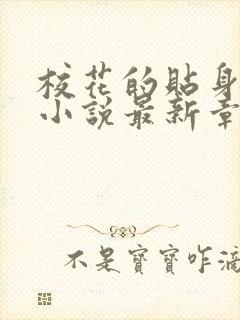 校花的貼身
小說最新章
不是寶寶咋滴